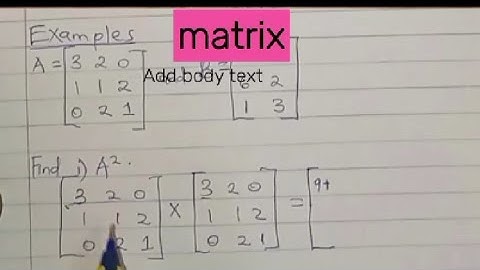 Examples
matrix
A = [3 2 0
Add body text
1 1 2
0 2 1]
2
1 3
Find i) A².
[3 2 0
1 1 2
0 2 1] × [3 2 0
1 1 2
0 2 1] = [9+